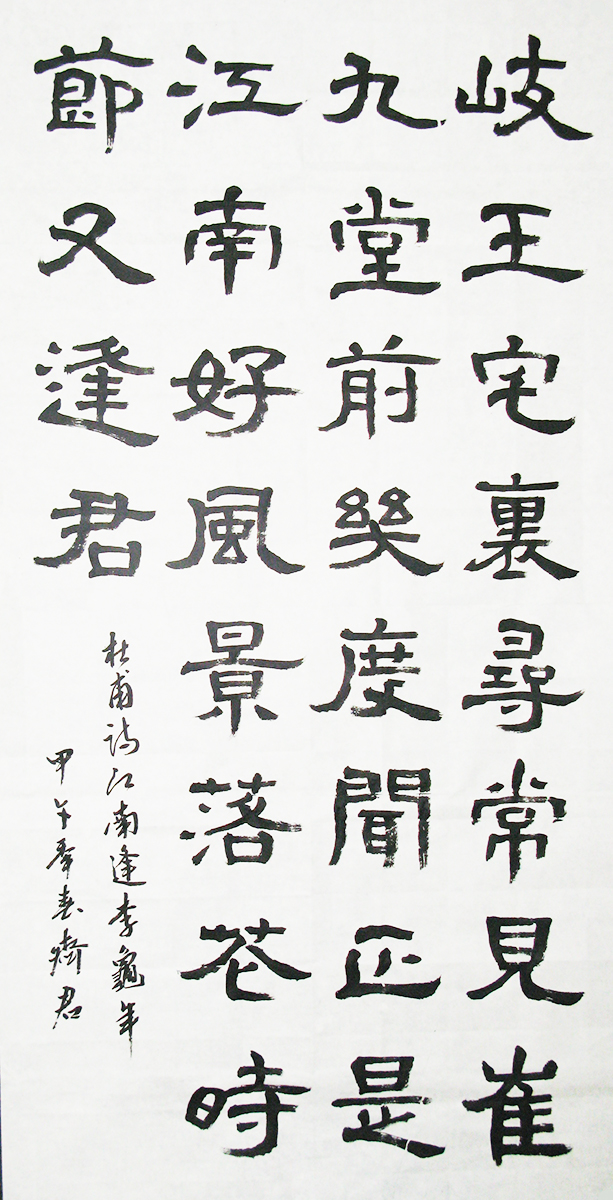 岐王宅裏尋常見崔
九堂前幾度聞正是
江南好風景落花時
節又逢君
杜甫詩江南逢李龜年
甲午春君